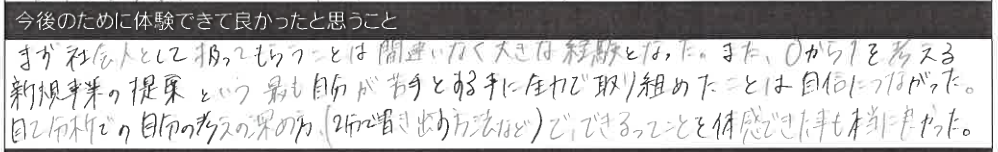 今後のために体験できて良かったと思うこと
まず社会人として扱ってもらうことは間違いなく大きな経験となった。また、0から1を考える
新規事業の提案という最も自分が苦手とする事に全力で取り組めたことは自信につながった。
自己分析での自分の考えの深め方、(2行で書き出す方法など)で、できるってことを体感できた事も本当に良かった。